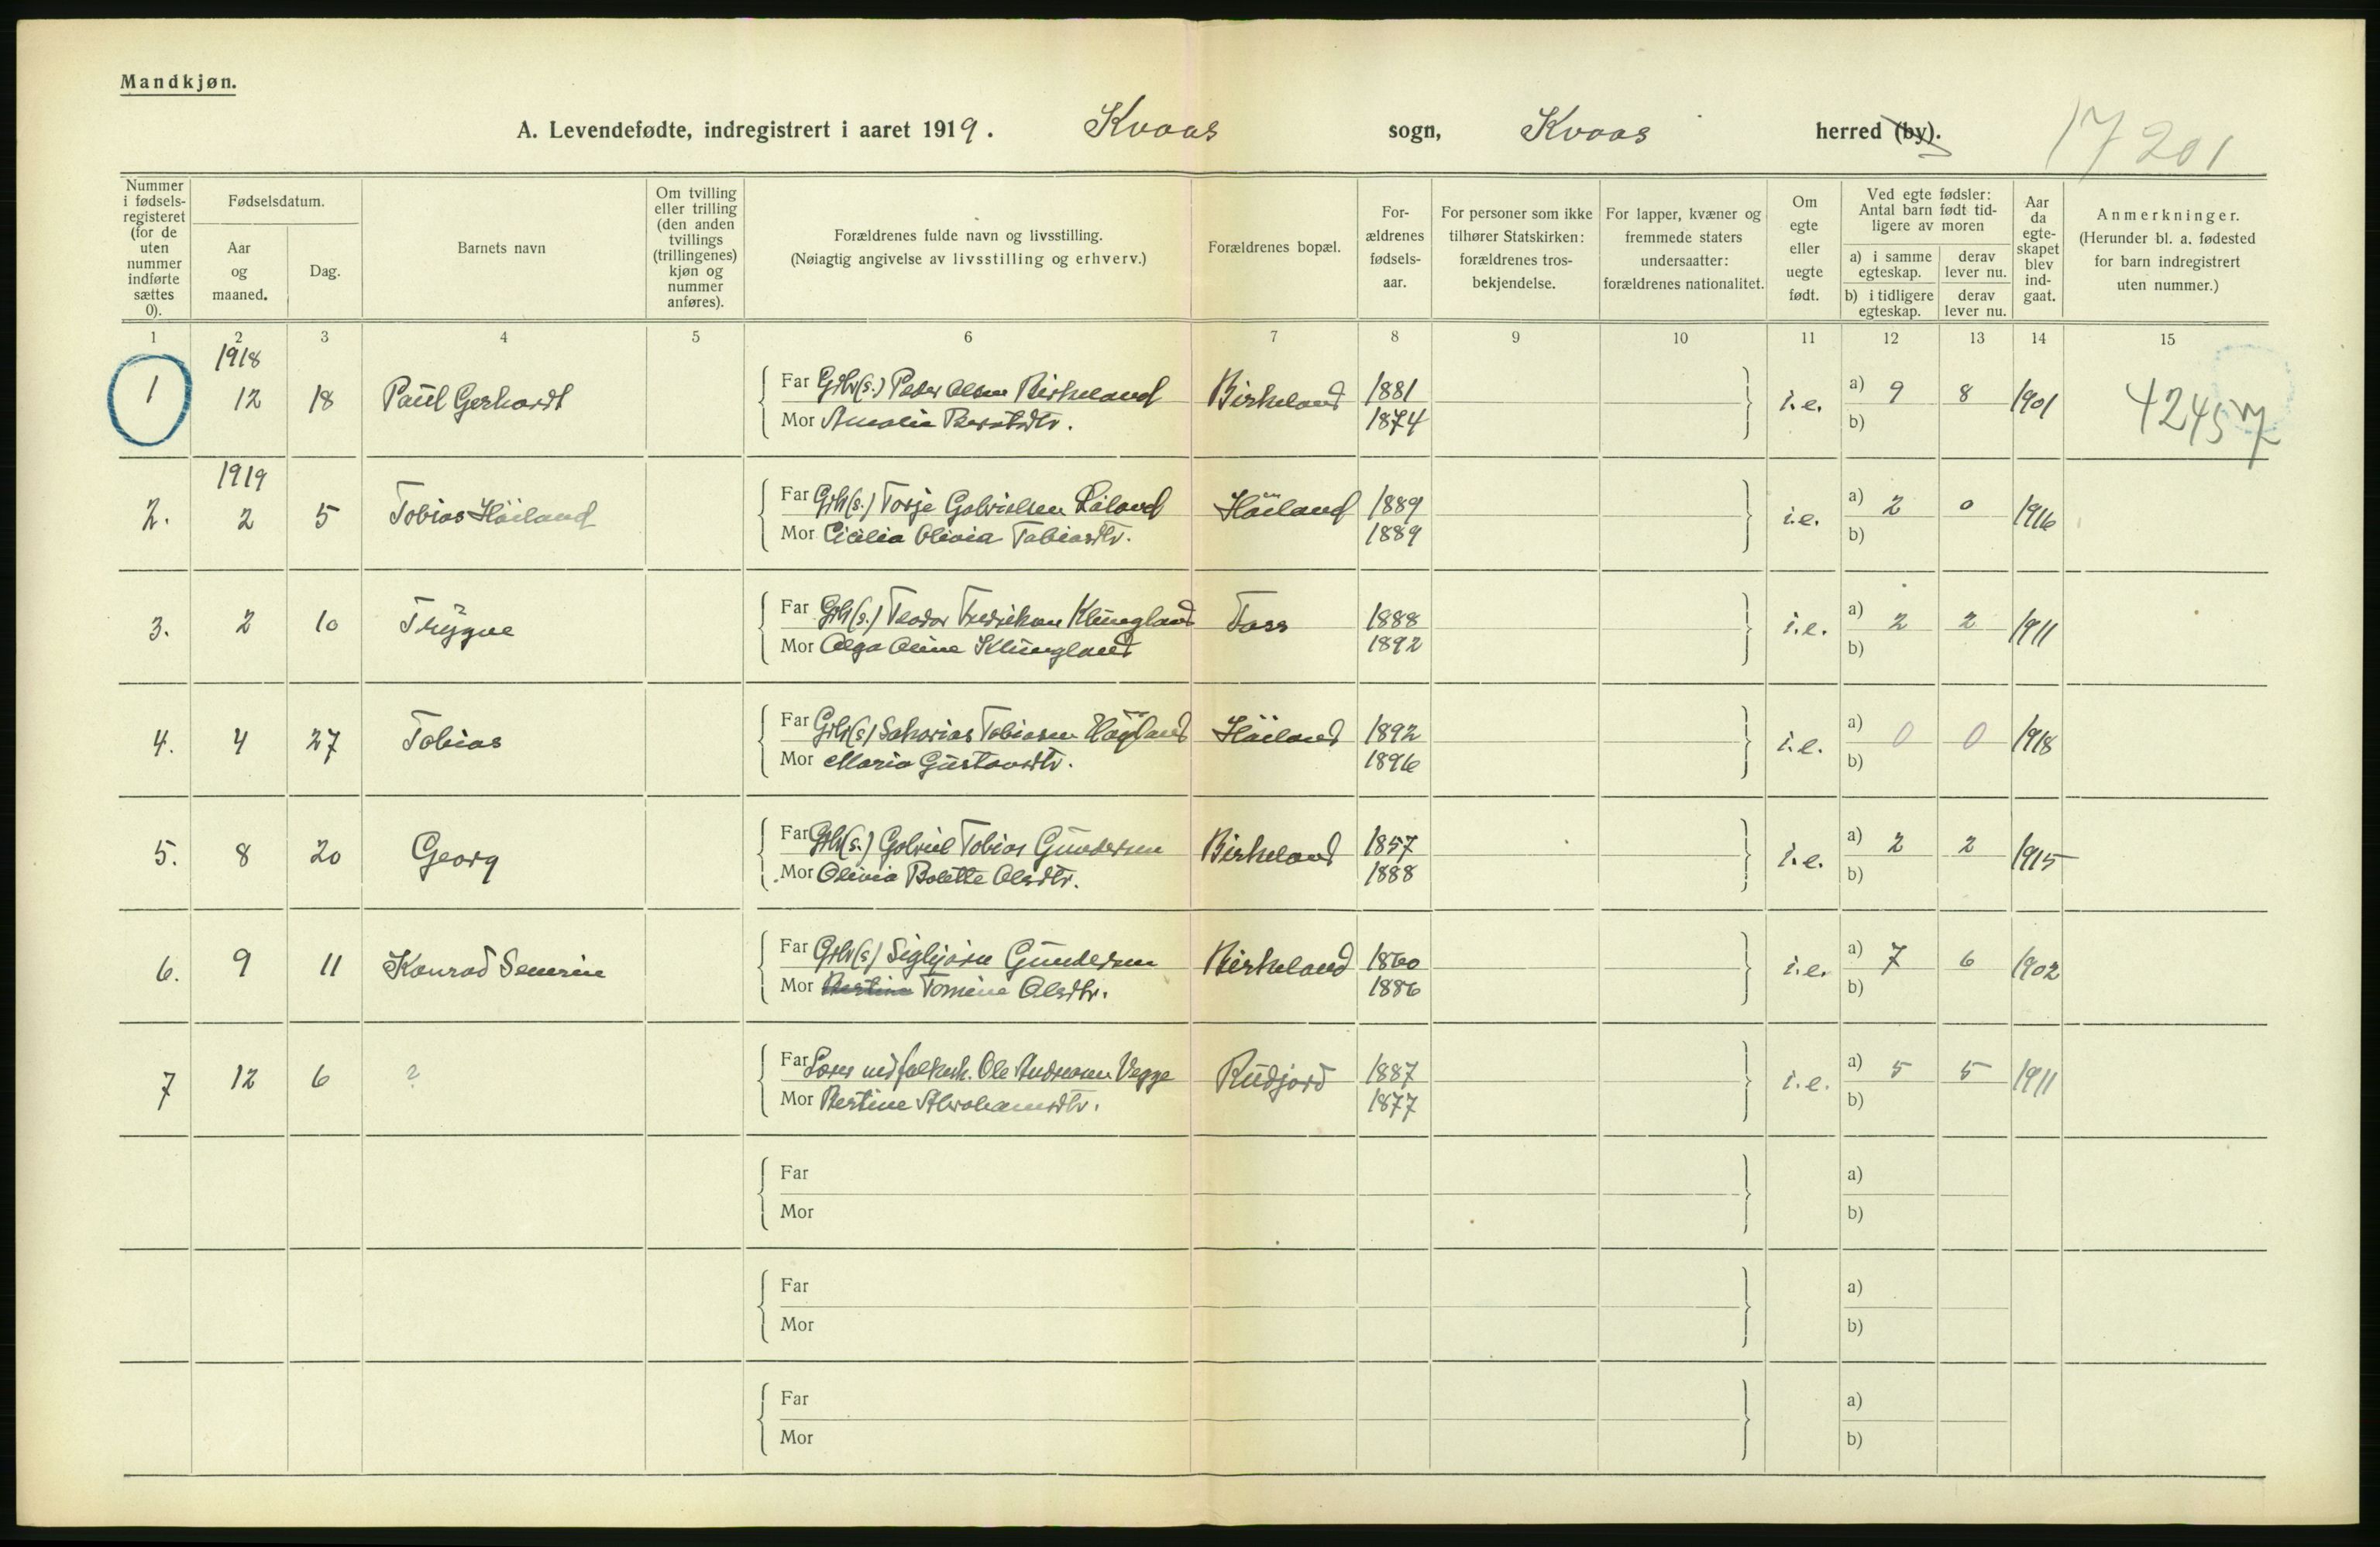 Mandkjøn.
A. Levendefødte, indregistrert i aaret 1919. Kvaas sogn, Kvaas herred (by).
17201
Nummer i fødsels-registeret (for de uten nummer indførte sættes 0).
Fødselsdatum.
Aar og maaned.
Dag.
Barnets navn
Om tvilling eller trilling (den anden tvillings (trillingenes) kjøn og nummer anføres).
Forældrenes fulde navn og livsstilling.
(Nøiagtig angivelse av livsstilling og erhverv.)
Forældrenes bopæl.
For-ældrenes fødsels-aar.
For personer som ikke tilhører Statskirken: forældrenes tros-bekjendelse.
For lapper, kvæner og fremmede staters undersaatter: forældrenes nationalitet.
Om egte eller uegte født.
Ved egte fødsler: Antal barn født tid-ligere av moren
a) i samme egteskap.
derav lever nu.
b) i tidligere egteskap.
derav lever nu.
Aar da egte-skapet blev ind-gaat.
Anmerkninger.
(Herunder bl. a. fødested for barn indregistrert uten nummer.)
1 2 3 4 5 6 7 8 9 10 11 12 13 14 15
1918
1 12 18 Paul Gerhardt Far Grbr(s.) Peder Olsen Birkeland Birkeland 1881 i.e. a) 9 8 1901 42457
Mor Amalia Berntsdtr. 1874 b)
1919
2. 2 5 Tobias Höiland Far Grbr(s.) Torje Gabrielsen Höiland 1889 i.e. a) 2 0 1916
Mor Cicilia Olivia Tobiasdtr. 1889 b)
3. 2 10 Trygve Far Grbr(s.) Teodor Fredriksen Klungland Foss 1888 i.e. a) 2 2 1911
Mor Olga Oline Klungland 1892 b)
4. 4 27 Tobias Far Grbr(s) Sakarias Tobiasen Höiland Höiland 1892 i.e. a) 0 0 1918
Mor Maria Gustavsdtr. 1896 b)
5. 8 20 Georg Far Grbr(s.) Gabriel Tobias Gundersen Birkeland 1857 i.e. a) 2 2 1915
Mor Olivia Bolette Olsdtr. 1888 b)
6. 9 11 Konrad Severin Far Grbr(s) Sigbjørn Gundersen Birkeland 1860 i.e. a) 7 6 1902
Mor Bertine Tomine Olsdtr. 1886 b)
7 12 6 ? Far Lærer ved folkesk. Ole Andreasen Vegge Rudjord 1887 i.e. a) 5 5 1911
Mor Bertine Abrahamsdtr. 1877 b)
Far a)
Mor b)
Far a)
Mor b)
Far a)
Mor b)